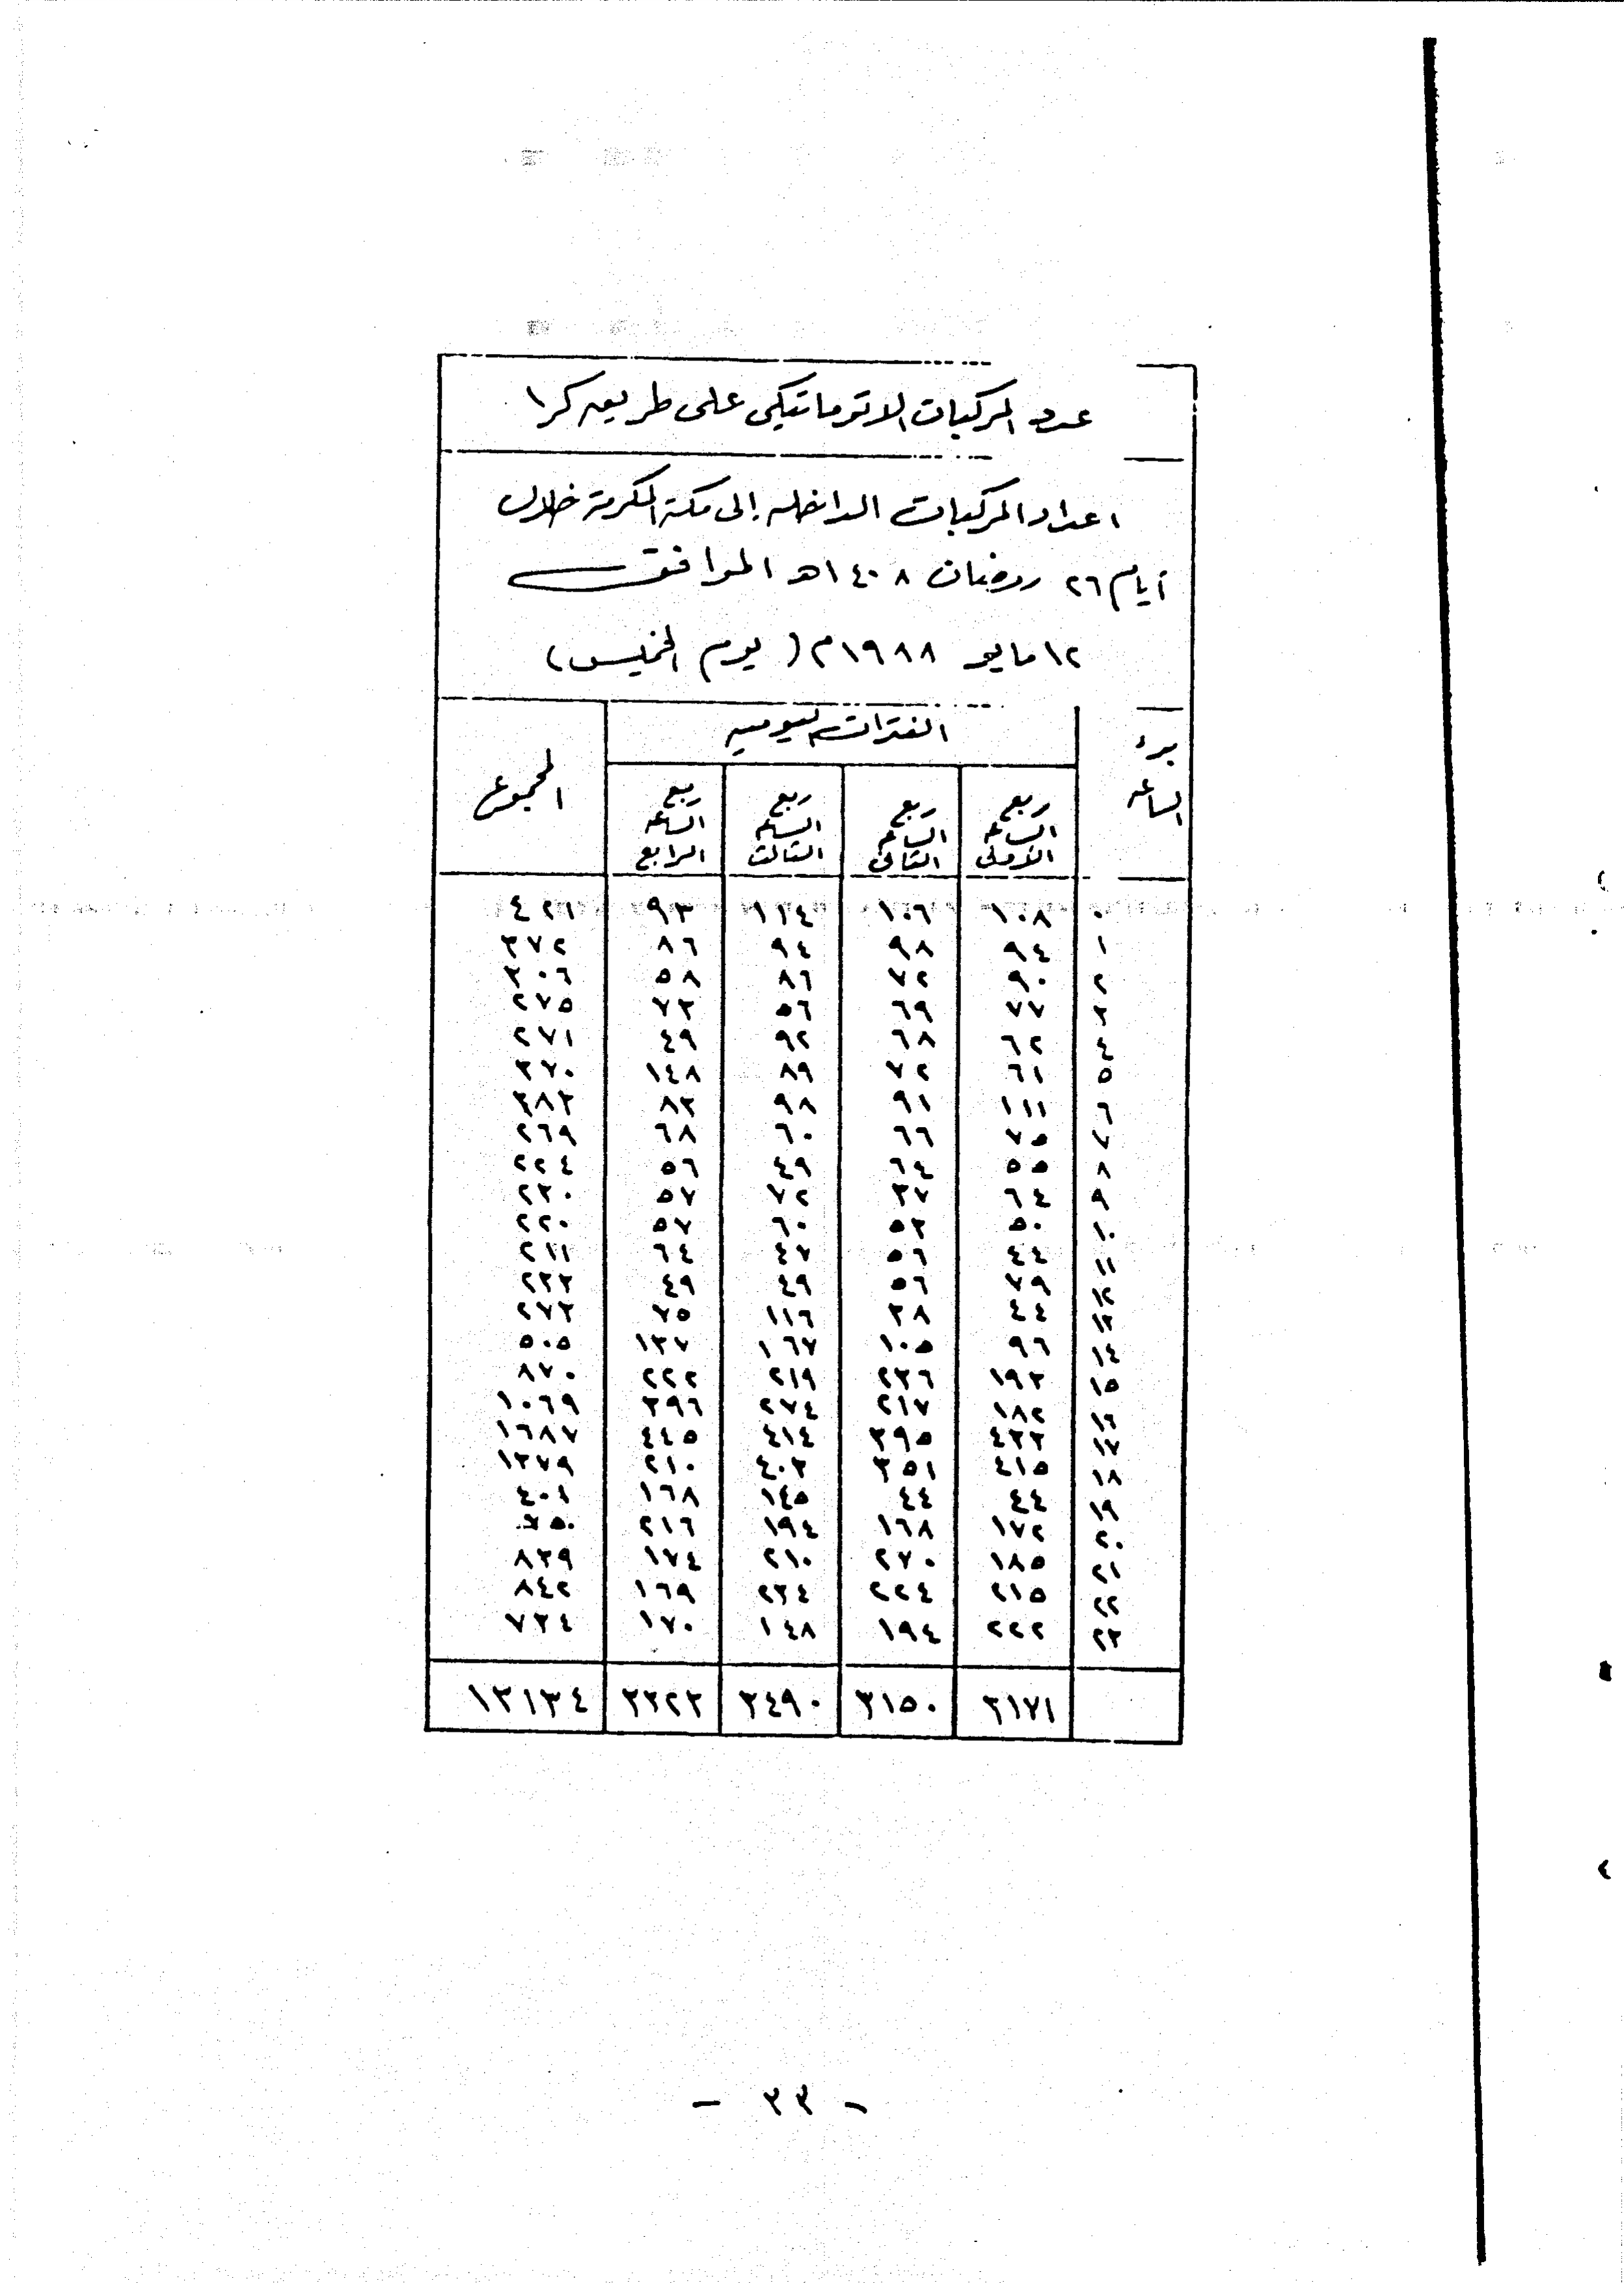 عدد المركبات الاتوماتيكى على طريق كرا
اعداد المركبات الداخله إلى مكة المكرمة خلال
أيام ٢٦ رمضان ١٤٠٨هـ الموافق
١٢ مايو ١٩٨٨م (يوم الخميس)
بدء الساعه | الفترات اليوميه | المجموع
ربع الساعه الأولى | ربع الساعه الثانى | ربع الساعه الثالث | ربع الساعه الرابع
٠ ١٠٨ ١٠٦ ١١٤ ٩٣ ٤٢١
١ ٩٤ ٩٨ ٩٤ ٨٦ ٣٧٢
٢ ٩٠ ٧٢ ٨٦ ٥٨ ٣٠٦
٣ ٧٧ ٦٩ ٥٦ ٧٣ ٢٧٥
٤ ٦٢ ٦٨ ٩٢ ٤٩ ٢٧١
٥ ٦١ ٧٢ ٨٩ ١٤٨ ٣٧٠
٦ ١١١ ٩١ ٩٨ ٨٣ ٣٨٣
٧ ٧٥ ٦٦ ٦٠ ٦٨ ٢٦٩
٨ ٥٥ ٦٤ ٤٩ ٥٦ ٢٢٤
٩ ٦٤ ٣٧ ٧٢ ٥٧ ٢٣٠
١٠ ٥٠ ٥٣ ٦٠ ٥٧ ٢٢٠
١١ ٤٤ ٥٦ ٤٧ ٦٤ ٢١١
١٢ ٧٩ ٥٦ ٤٩ ٤٩ ٢٣٣
١٣ ٤٤ ٣٨ ١١٦ ٧٥ ٢٧٣
١٤ ٩٦ ١٠٥ ١٦٧ ١٣٧ ٥٠٥
١٥ ١٩٣ ٢٣٦ ٢١٩ ٢٢٢ ٨٧٠
١٦ ١٨٢ ٢١٧ ٢٧٤ ٣٩٦ ١٠٦٩
١٧ ٤٣٣ ٣٩٥ ٤١٤ ٤٤٥ ١٦٨٧
١٨ ٤١٥ ٣٥١ ٤٠٣ ٢١٠ ١٣٧٩
١٩ ٤٤ ٤٤ ١٤٥ ١٦٨ ٤٠١
٢٠ ١٧٢ ١٦٨ ١٩٤ ٢١٦ ٧٥٠
٢١ ١٨٥ ٢٧٠ ٢١٠ ١٧٤ ٨٣٩
٢٢ ٢١٥ ٢٢٤ ٢٣٤ ١٦٩ ٨٤٢
٢٣ ٢٢٢ ١٩٤ ١٤٨ ١٧٠ ٧٣٤
٣١٧١ ٣١٥٠ ٣٤٩٠ ٣٣٢٣ ١٣١٣٤
- ٣٣ -